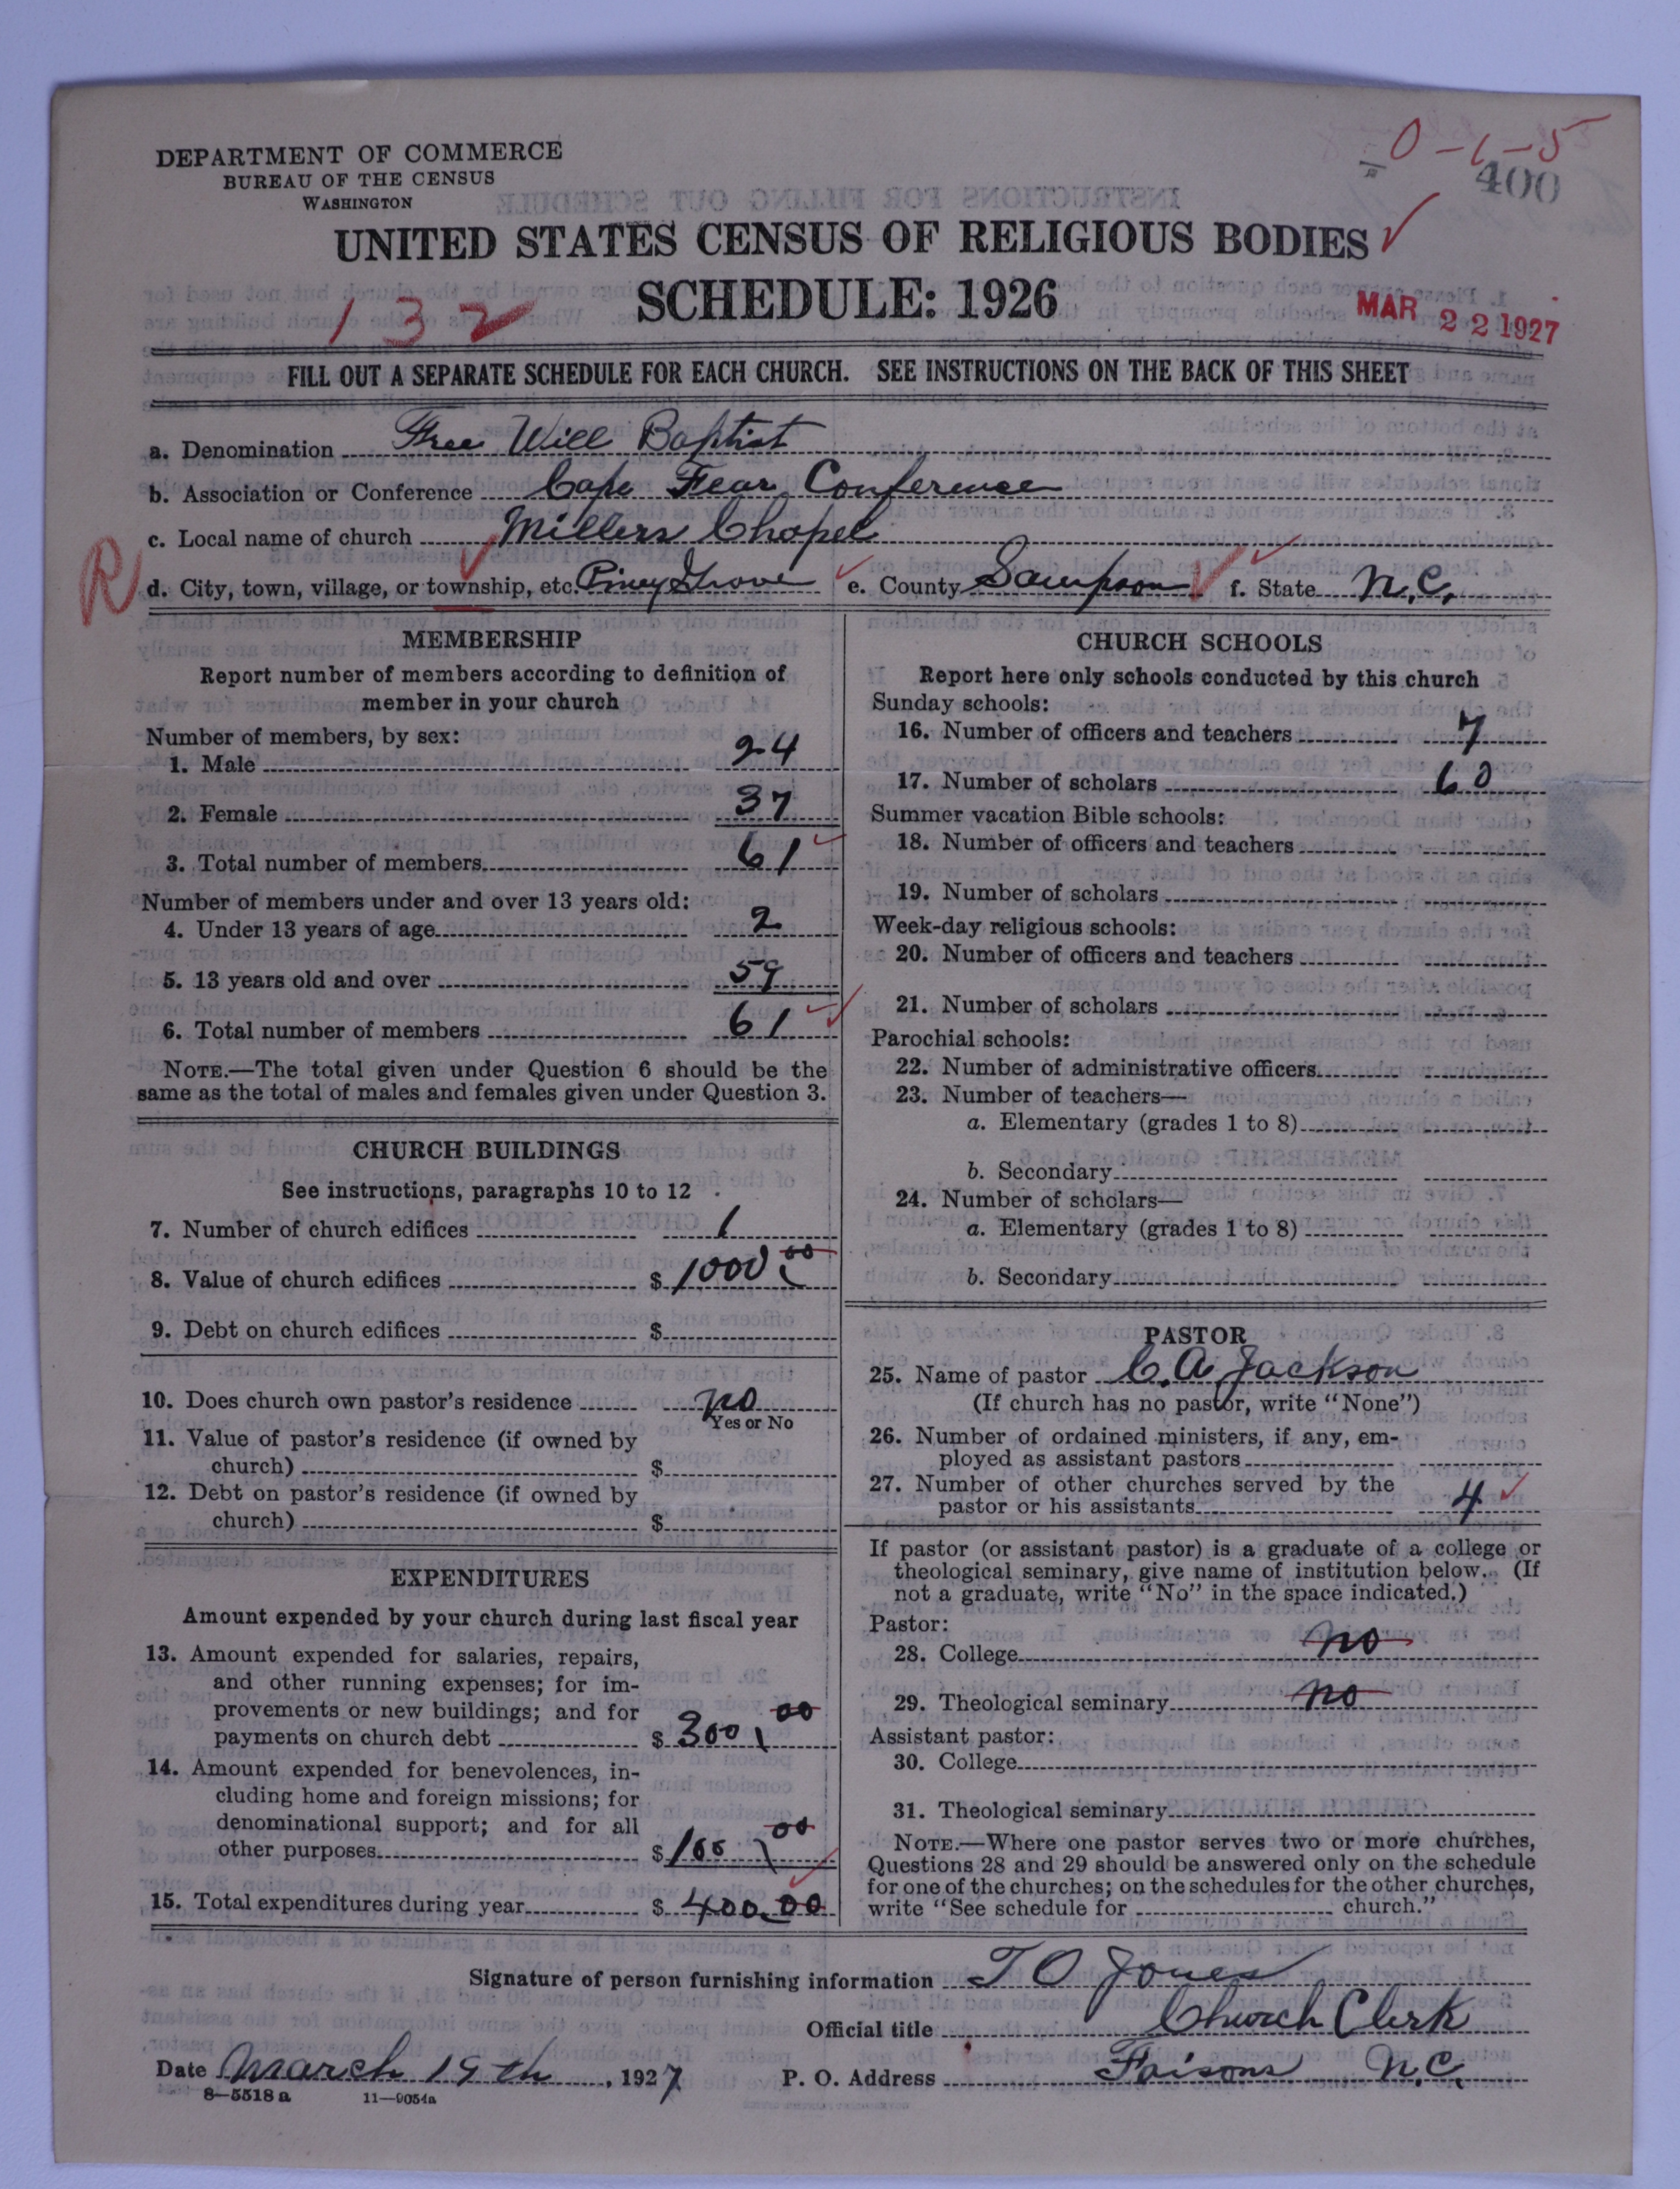 0-1-5
400
DEPARTMENT OF COMMERCE
BUREAU OF THE CENSUS
WASHINGTON
UNITED STATES CENSUS OF RELIGIOUS BODIES
SCHEDULE: 1926
132
MAR 22 1927
FILL OUT A SEPARATE SCHEDULE FOR EACH CHURCH. SEE INSTRUCTIONS ON THE BACK OF THIS SHEET
a. Denomination Free Will Baptist
b. Association or Conference Cape Fear Conference
c. Local name of church Millers Chapel
R d. City, town, village, or township, etc. Piney Grove e. County Sampson f. State N.C.
MEMBERSHIP
Report number of members according to definition of
member in your church
Number of members, by sex:
1. Male 24
2. Female 37
3. Total number of members 61
Number of members under and over 13 years old:
4. Under 13 years of age 2
5. 13 years old and over 59
6. Total number of members 61
NOTE.—The total given under Question 6 should be the
same as the total of males and females given under Question 3.
CHURCH BUILDINGS
See instructions, paragraphs 10 to 12
7. Number of church edifices 1
8. Value of church edifices $1000.00
9. Debt on church edifices $
10. Does church own pastor's residence no
Yes or No
11. Value of pastor's residence (if owned by
church) $
12. Debt on pastor's residence (if owned by
church) $
EXPENDITURES
Amount expended by your church during last fiscal year
13. Amount expended for salaries, repairs,
and other running expenses; for im-
provements or new buildings; and for
payments on church debt $300.00
14. Amount expended for benevolences, in-
cluding home and foreign missions; for
denominational support; and for all
other purposes $100.00
15. Total expenditures during year $400.00
CHURCH SCHOOLS
Report here only schools conducted by this church
Sunday schools:
16. Number of officers and teachers 7
17. Number of scholars 60
Summer vacation Bible schools:
18. Number of officers and teachers
19. Number of scholars
Week-day religious schools:
20. Number of officers and teachers
21. Number of scholars
Parochial schools:
22. Number of administrative officers
23. Number of teachers—
a. Elementary (grades 1 to 8)
b. Secondary
24. Number of scholars—
a. Elementary (grades 1 to 8)
b. Secondary
PASTOR
25. Name of pastor C. A. Jackson
(If church has no pastor, write "None")
26. Number of ordained ministers, if any, em-
ployed as assistant pastors
27. Number of other churches served by the
pastor or his assistants 4
If pastor (or assistant pastor) is a graduate of a college or
theological seminary, give name of institution below. (If
not a graduate, write "No" in the space indicated.)
Pastor:
28. College no
29. Theological seminary no
Assistant pastor:
30. College
31. Theological seminary
NOTE.—Where one pastor serves two or more churches,
Questions 28 and 29 should be answered only on the schedule
for one of the churches; on the schedules for the other churches,
write "See schedule for church."
Signature of person furnishing information T O Jones
Official title Church Clerk
Date March 19th, 1927 P. O. Address Faisons N.C.
8—5518a 11—9054a